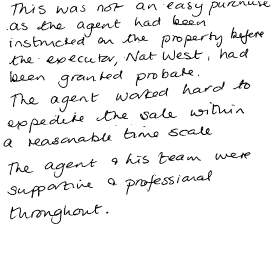 This was not an easy purchase
as the agent had been
instructed on the property before
the executor, Nat West, had
been granted probate.
The agent worked hard to
expedite the sale within
a reasonable time scale
The agent & his team were
supportive & professional
throughout.